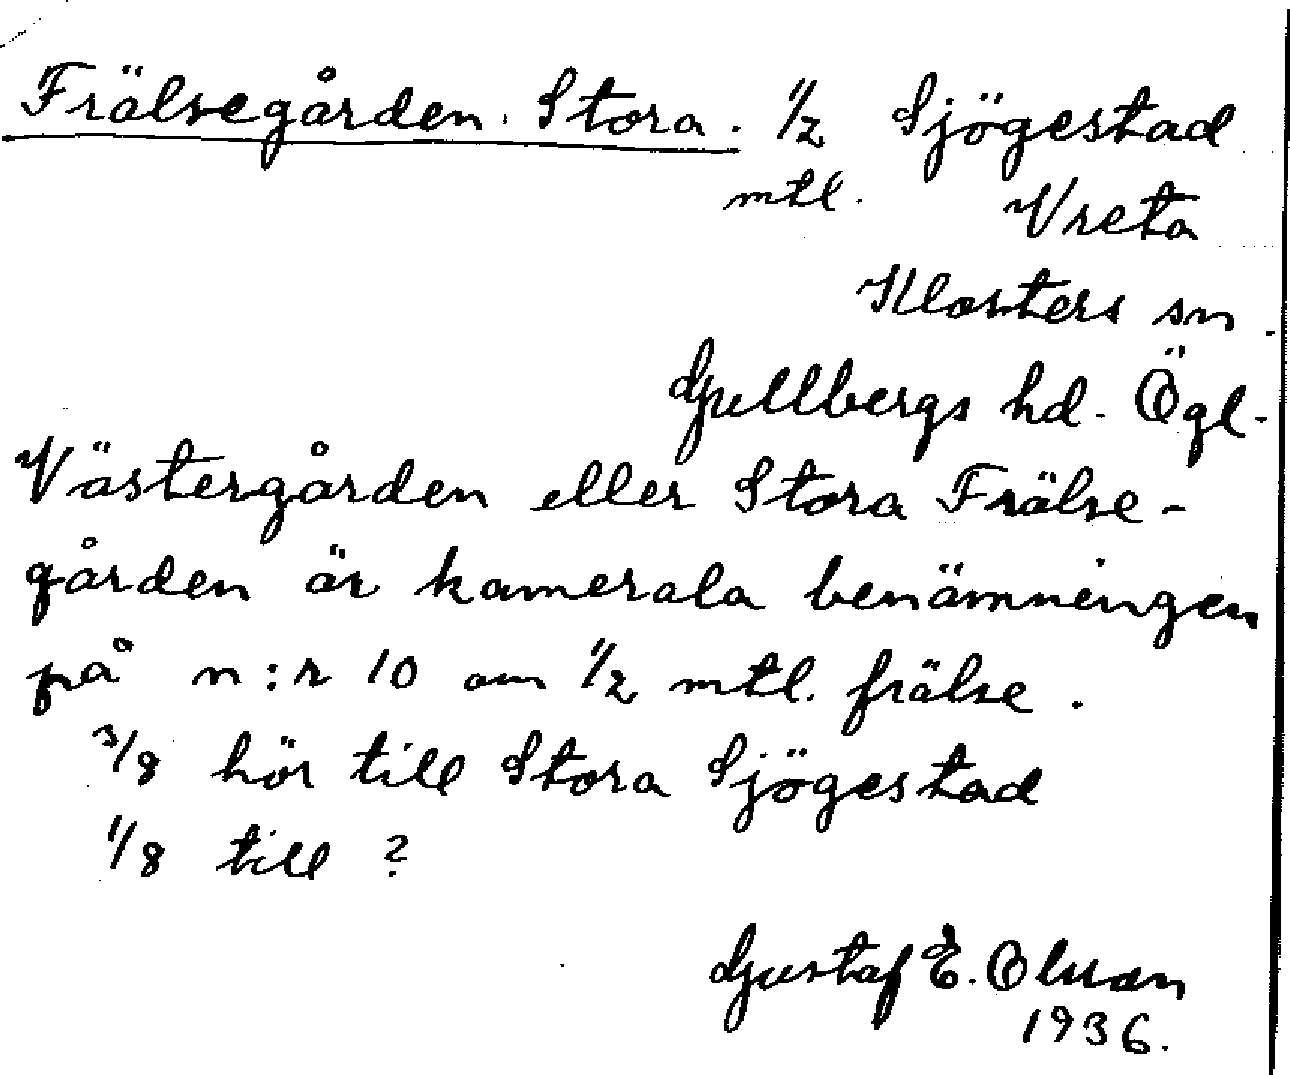 Frälsegården. Stora. 1/2 Sjögestad
mtl. Vreta
Klosters sn.
Gullbergs hd. Ögl.
Västergården eller Stora Frälse-
gården är kamerala benämningen
på n:r 10 om 1/2 mtl. frälse.
3/8 hör till Stora Sjögestad
1/8 till ?
Gustaf E. Olsson
1936.